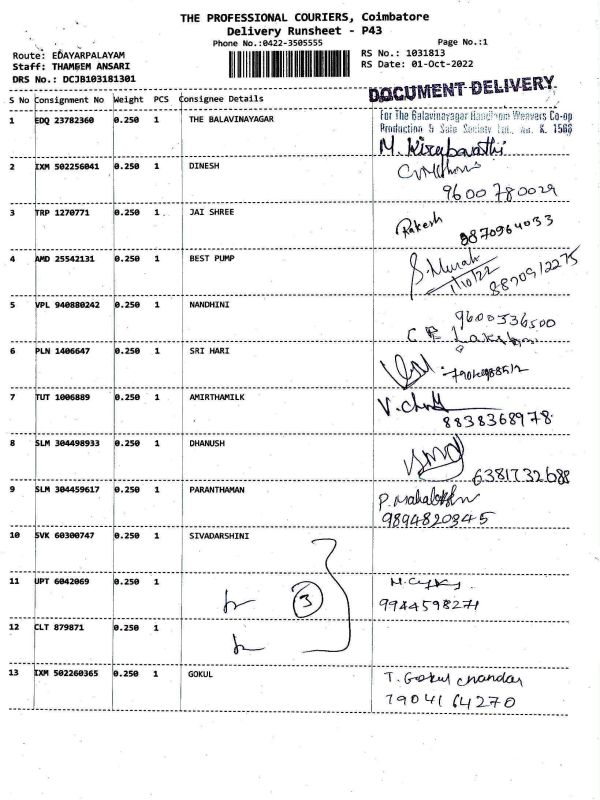 THE PROFESSIONAL COURIERS, Coimbatore
Delivery Runsheet - P43
Phone No.:0422-3505555
Page No.:1
Route: EDAYARPALAYAM
RS No.: 1031813
Staff: THAMEEM ANSARI
RS Date: 01-Oct-2022
DRS No.: DCJB103181301
DOCUMENT DELIVERY
S No Consignment No Weight PCS Consignee Details
1 EDQ 23782360 0.250 1 THE BALAVINAYAGAR
For The Balavinayagar Handloom Weavers Co-op
Production & Sale Society Ltd., No. K. 1568
2 IXM 502256041 0.250 1 DINESH
9600780029
3 TRP 1270771 0.250 1 JAI SHREE
Rakesh
8870964033
4 AMD 25542131 0.250 1 BEST PUMP
1/10/22
8870912275
5 VPL 940880242 0.250 1 NANDHINI
9600536500
6 PLN 1406647 0.250 1 SRI HARI
7 TUT 1006889 0.250 1 AMIRTHAMILK
8838368978
8 SLM 304498933 0.250 1 DHANUSH
6381732688
9 SLM 304459617 0.250 1 PARANTHAMAN
9894820345
10 SVK 60300747 0.250 1 SIVADARSHINI
11 UPT 6042069 0.250 1
3
9944598271
12 CLT 879871 0.250 1
13 IXM 502260365 0.250 1 GOKUL
T. Gokul chandar
7904164270